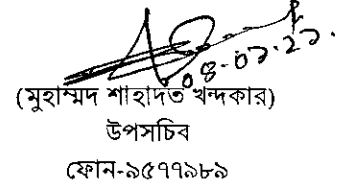 ০৪-০১-২১.
(মুহাম্মদ শাহাদত খন্দকার)
উপসচিব
ফোন-৯৫৭৭৯৮৯